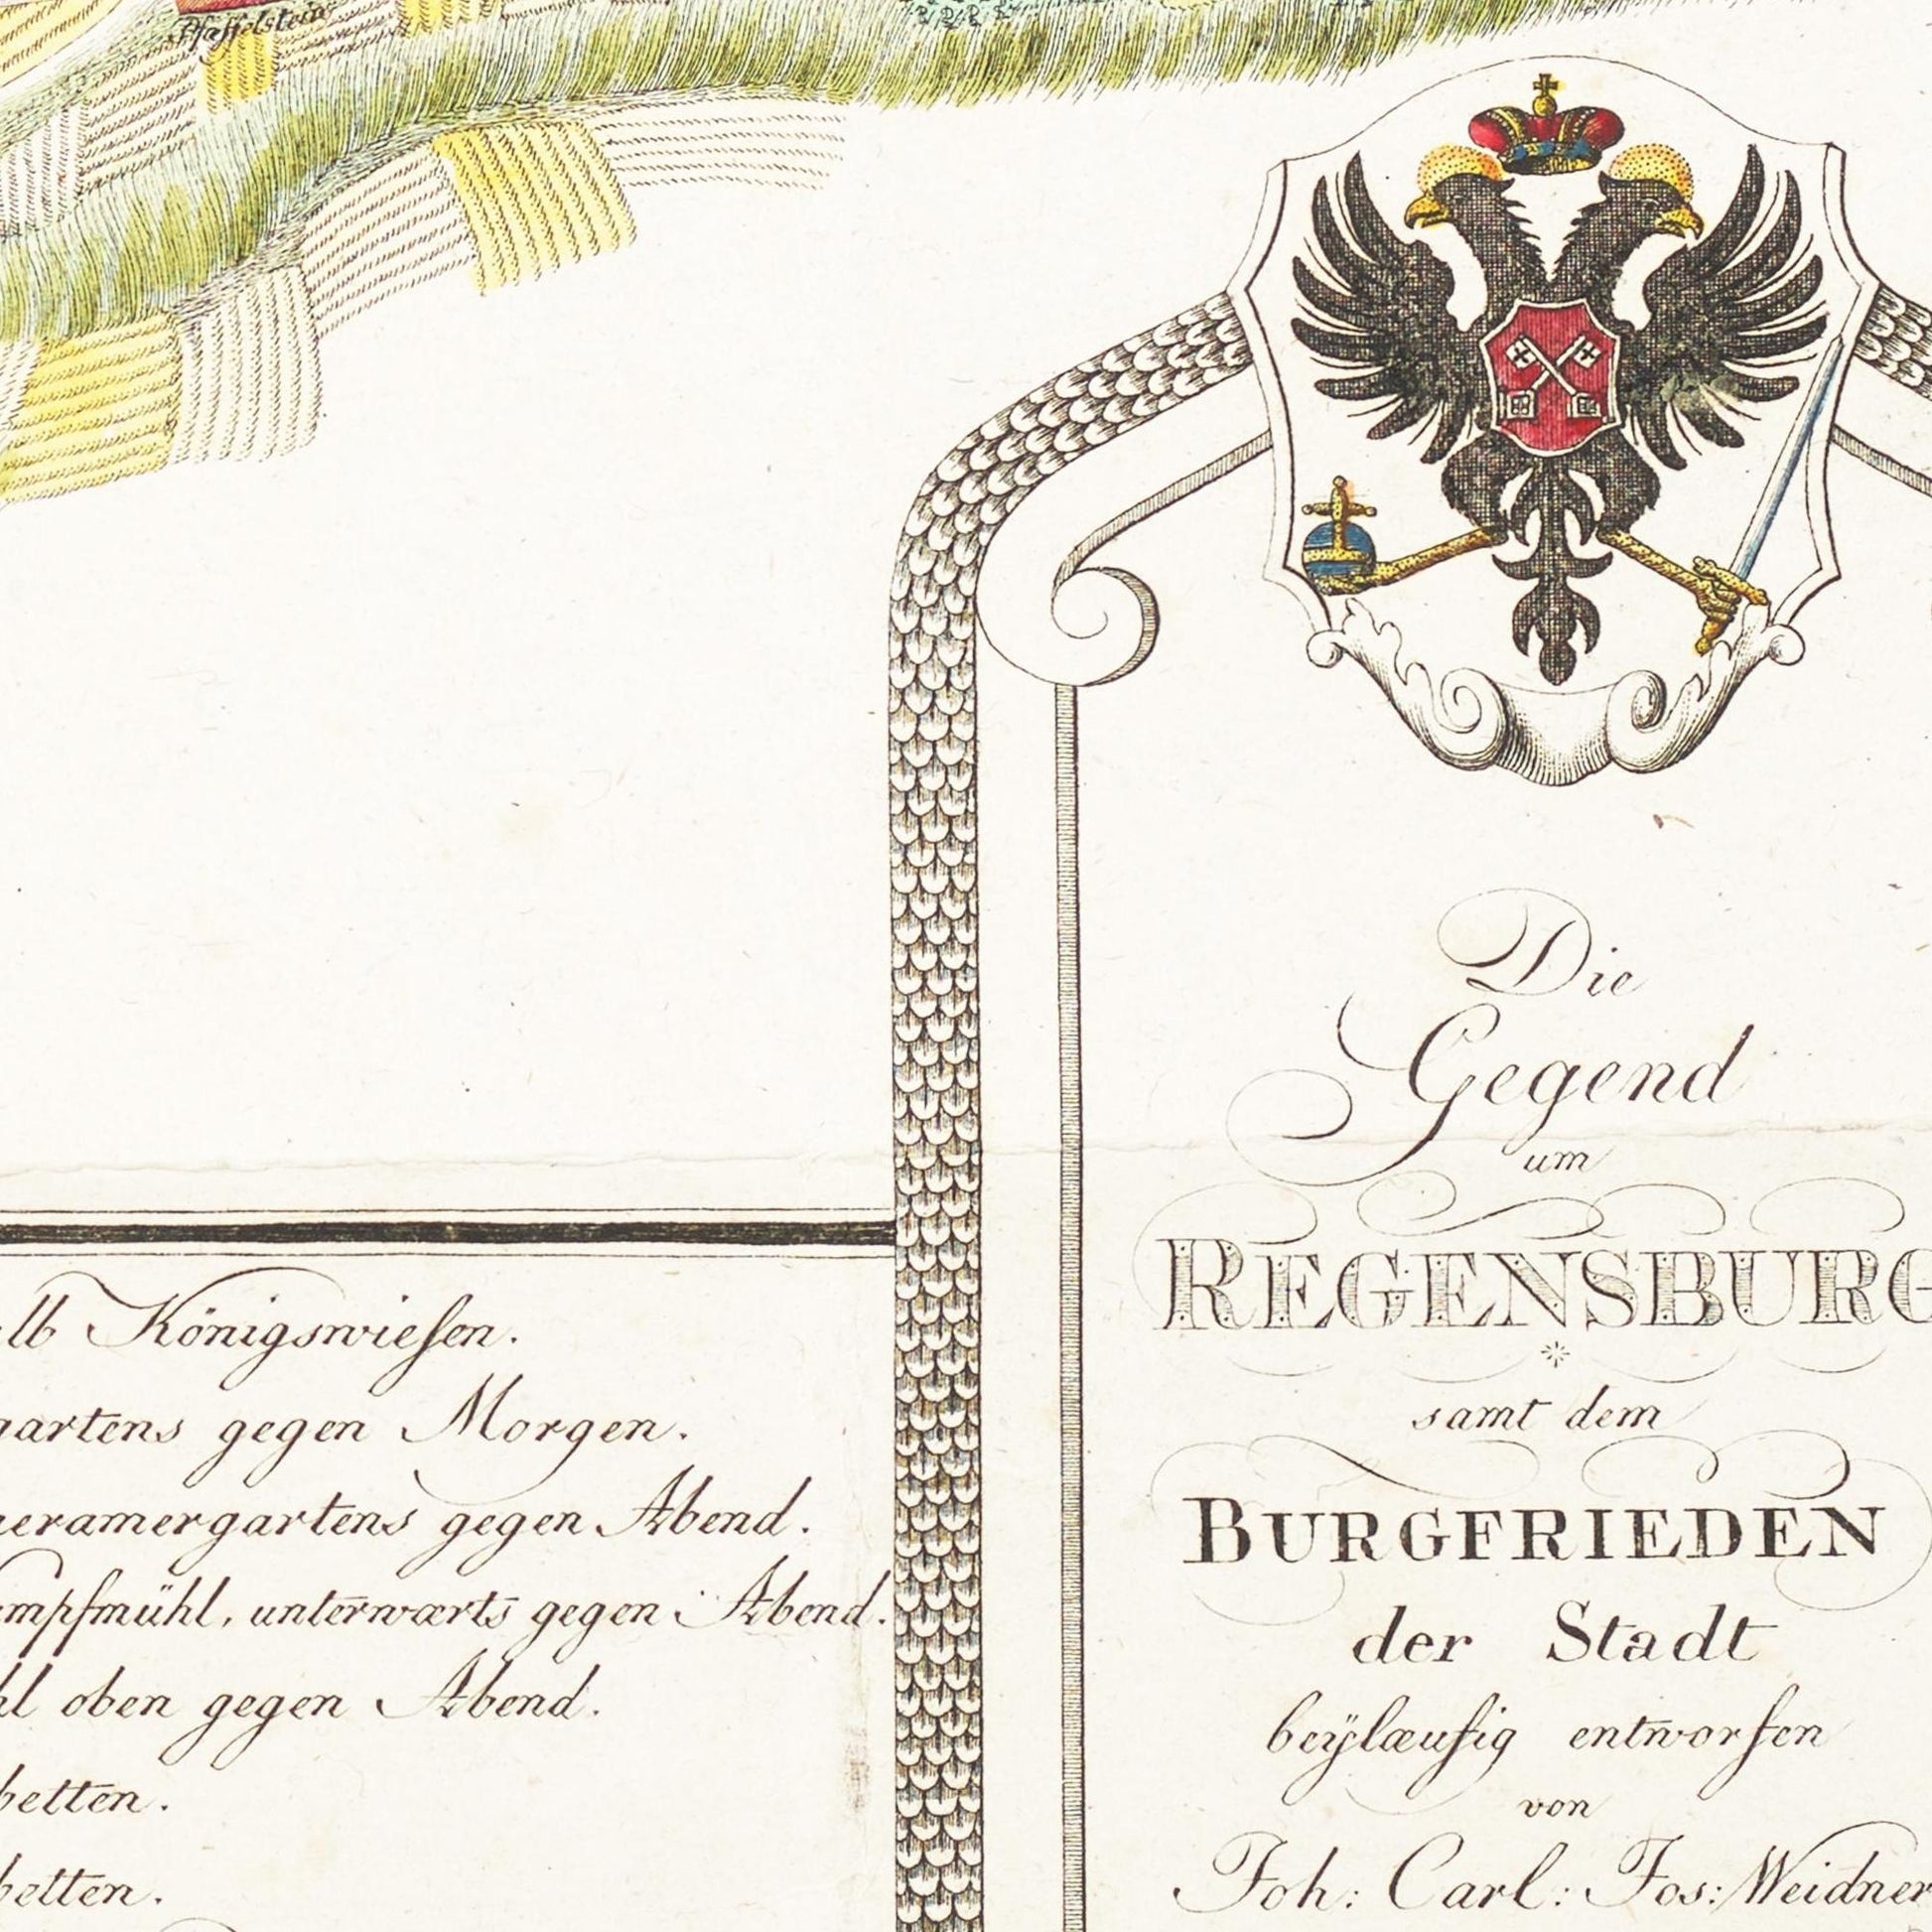 Pfaffelstein
Königswiesen.
gartens gegen Morgen.
meramergartens gegen Abend.
mpfmühl, unterwærts gegen Abend.
oben gegen Abend.
betten.
betten.
Die
Gegend
um
REGENSBURG
samt dem
BURGFRIEDEN
der Stadt
beÿlæufig entworfen
von
Joh: Carl: Jos: Weidner